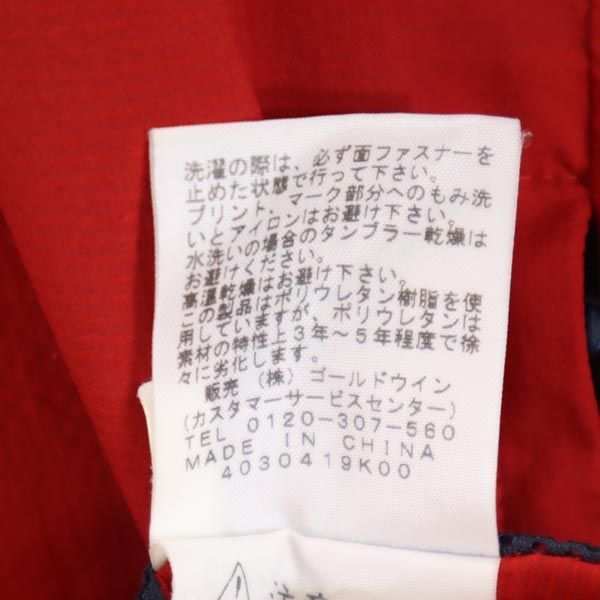 洗濯の際は、必ず面ファスナーを
止めた状態で行って下さい。
プリント、マーク部分へのもみ洗
いとアイロンはお避け下さい。
水洗いの場合のタンブラー乾燥は
お避けください。
高温の乾燥はお避け下さい。
この製品はポリウレタン樹脂を使
用していますが、ポリウレタンは
素材の特性上3年～5年程度で徐
々に劣化します。
販売 (株) ゴールドウイン
(カスタマーサービスセンター)
TEL 0120-307-560
MADE IN CHINA
4030419K00
注意